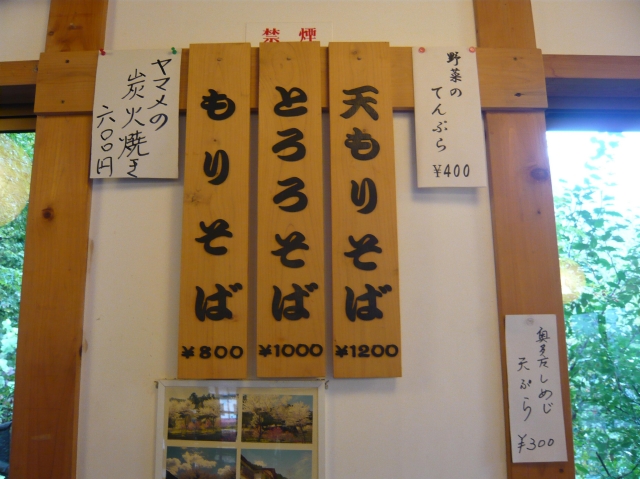 禁煙
野菜の
てんぷら
¥400
天もりそば
¥1200
とろろそば
¥1000
もりそば
¥800
ヤマメの
炭火焼き
六〇〇円
奥多摩しめじ
天ぷら
¥300